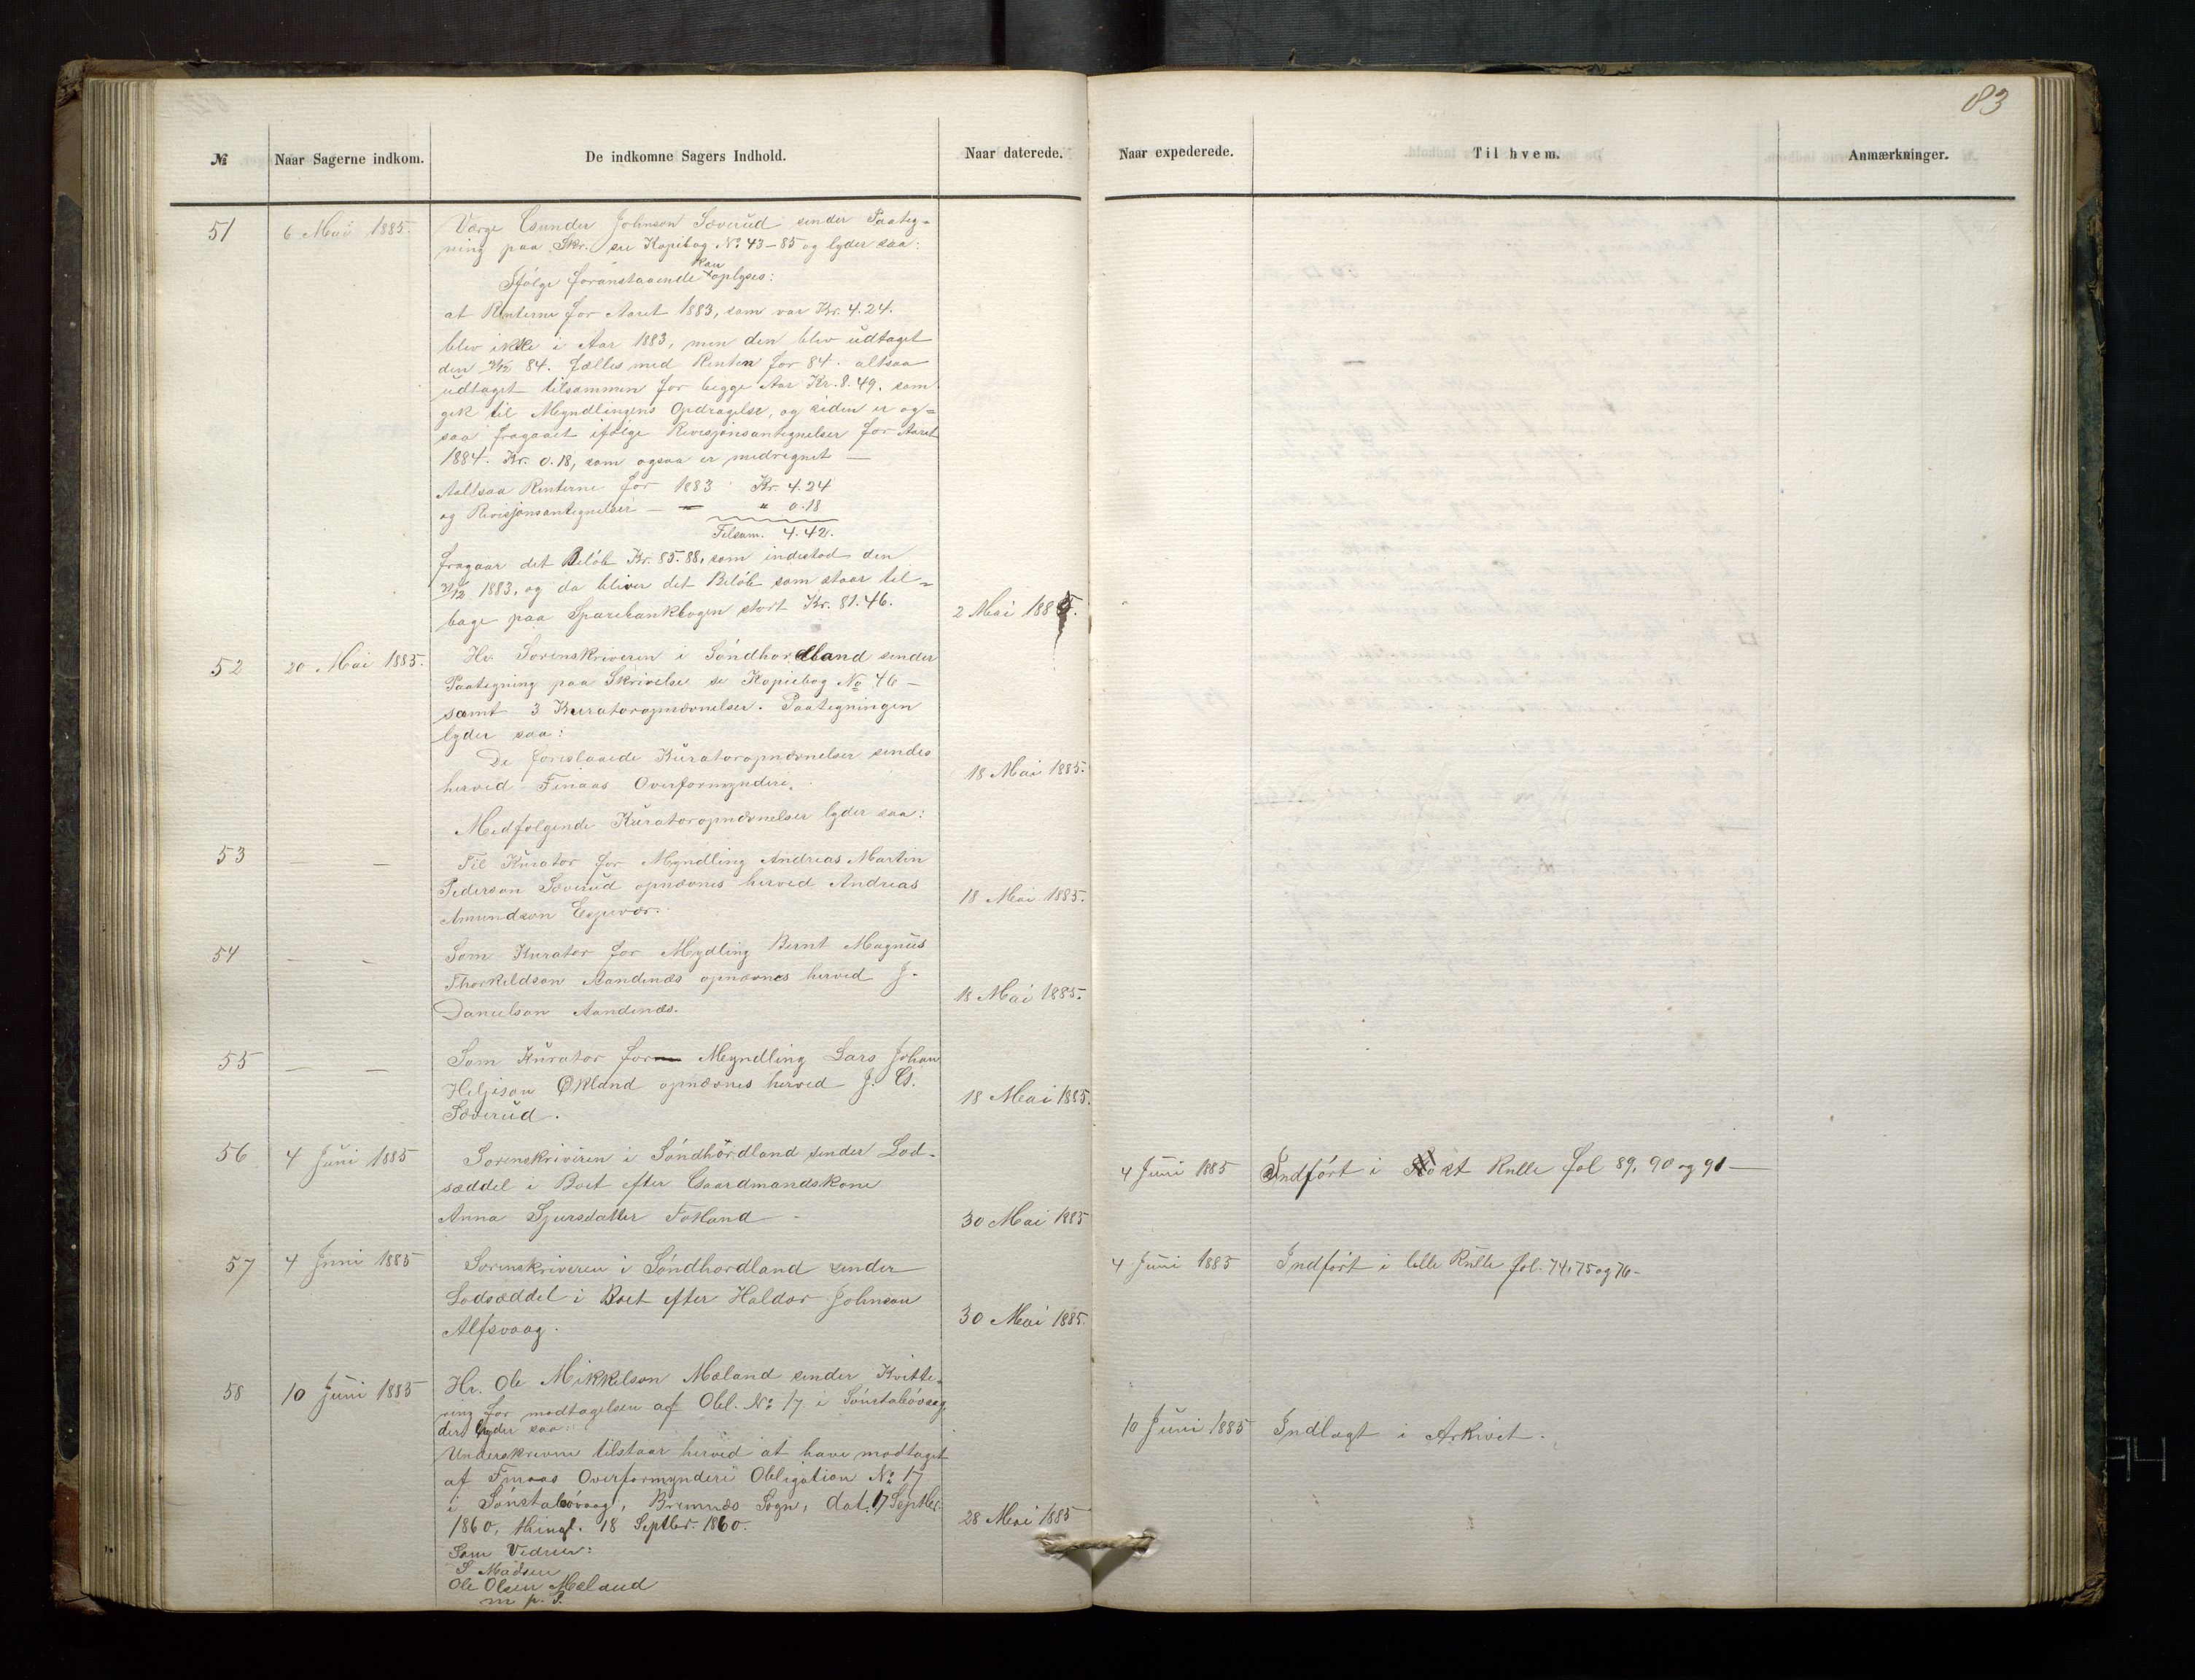 83
№ Naar Sagerne indkom. De indkomne Sagers Indhold. Naar daterede. Naar expederede. Til hvem. Anmærkninger.
51 6 Mai 1885. Værge Gunder Johnson Sæverud sender Paateg=
ning paa Skr. see Kopibog No 43-85 og lyder saa:
kan
Ifølge foranstaaende oplyses:
at Renterne for Aaret 1883, som var Kr. 4.24.
blev ikke i Aar 1883, men den blev udtaget
den 31/12 84. fælles med Renten for 84. altsaa
udtaget tilsammen for begge Aar Kr. 8.49. som
gik til Myndlingens Opdragelse, og siden er og=
saa fragaaet ifølge Revisjonsantegnelser for Aaret
1884. Kr. 0.18, som ogsaa er medregnet —
Aaltsaa Renterne for 1883 Kr. 4.24
og Revisjonsantegnelser — — " 0.18
Tilsam. 4.42.
fragaar det Beløb Kr. 85.88, som indestod den
31/12 1883, og da bliver det Beløb som staar til=
bage paa Sparebankbogen stort Kr. 81.46. 2 Mai 1885.
52 20 Mai 1885. Hr. Sorenskriveren i Søndhordland sender
Paategning paa Skrivelse se Kopiebog No 46 —
samt 3 Kuratoropnævnelser. Paategningen
lyder saa:
De foreslaaede Kuratoropnævnelser sendes
herved Finaas Overformynderi. 18 Mai 1885.
Medfølgende Kuratoropnævnelser lyder saa:
53 — — Til Kurator for Myndling Andreas Martin
Pederson Sæverud opnævnes herved Andreas
Amundson Espevær. 18 Mai 1885.
54 — — Som Kurator for Mydling Bernt Magnus
Thorkildson Aandenæs opnævnes herved J.
Danielson Aandenæs. 18 Mai 1885.
55 — — Som Kurator for Myndling Lars Johan
Helgison Økland opnævnes herved J. G.
Sæverud. 18 Mai 1885.
56 4 Juni 1885 Sorenskriveren i Søndhordland sender Lod-
sæddel i Boet efter Gaardmandskone
Anna Sjursdatter Fotland — 30 Mai 1885
4 Juni 1885 Indført i st Rulle fol 89, 90 og 91 —
57 4 Juni 1885 Sorenskriveren i Søndhordland sender
Lodsæddel i Boet efter Haldor Johnson
Alfsvaag. 30 Mai 1885.
4 Juni 1885 Indført i lille Rulle fol. 74, 75 og 76 -
58 10 Juni 1885 Hr. Ole Mikkelson Mæland sender Kvitte-
ring for modtagelsen af Obl. No 17 i Sønstabøvaag,
der lyder saa:
Underskrevne tilstaar herved at have modtaget
af Finaas Overformynderi Obligation No 17
i Sønstabøvaag, Bremnæs Sogn, dat. 17 Septbr.
1860, thingl. 18 Septbr. 1860. 28 Mai 1885
Som Vidner:
S Madsen
Ole Olsen Mæland
m. p. P.
10 Juni 1885 Indlagt i Arkivet.